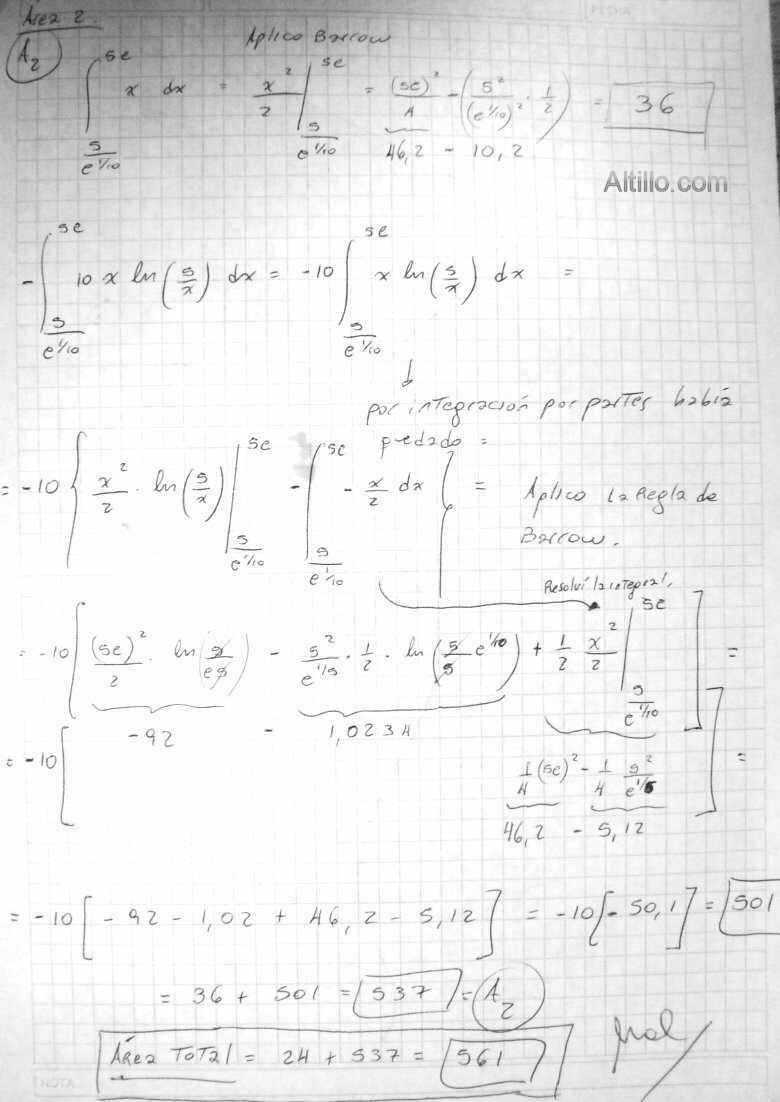 Área 2.
A₂ Aplico Barrow
∫_{5/e^{1/10}}^{5e} x dx = x²/2 |_{5/e^{1/10}}^{5e} = (5e)²/4 - (5²/(e^{1/10})² · 1/2) = 36
46,2 - 10,2
Altillo.com
-∫_{5/e^{1/10}}^{5e} 10 x ln(5/x) dx = -10 ∫_{5/e^{1/10}}^{5e} x ln(5/x) dx =
↓
por integración por partes había
quedado =
= -10 { x²/2 · ln(5/x) |_{5/e^{1/10}}^{5e} - ∫_{5/e^{1/10}}^{5e} - x/2 dx } = Aplico la Regla de
Barrow.
Resolví la integral.
= -10 [ (5e)²/2 · ln(5/e5) - 5²/e^{1/5} · 1/2 · ln(5/5 e^{1/10}) + 1/2 x²/2 |_{5/e^{1/10}}^{5e} ] =
= -10 [ -92 - 1,0234
1/4 (5e)² - 1/4 5²/e^{1/5} ] =
46,2 - 5,12
= -10 [ -92 - 1,02 + 46,2 - 5,12 ] = -10 [- 50,1] = 501
= 36 + 501 = 537 = A₂
Área TOTAL = 24 + 537 = 561
NOTA